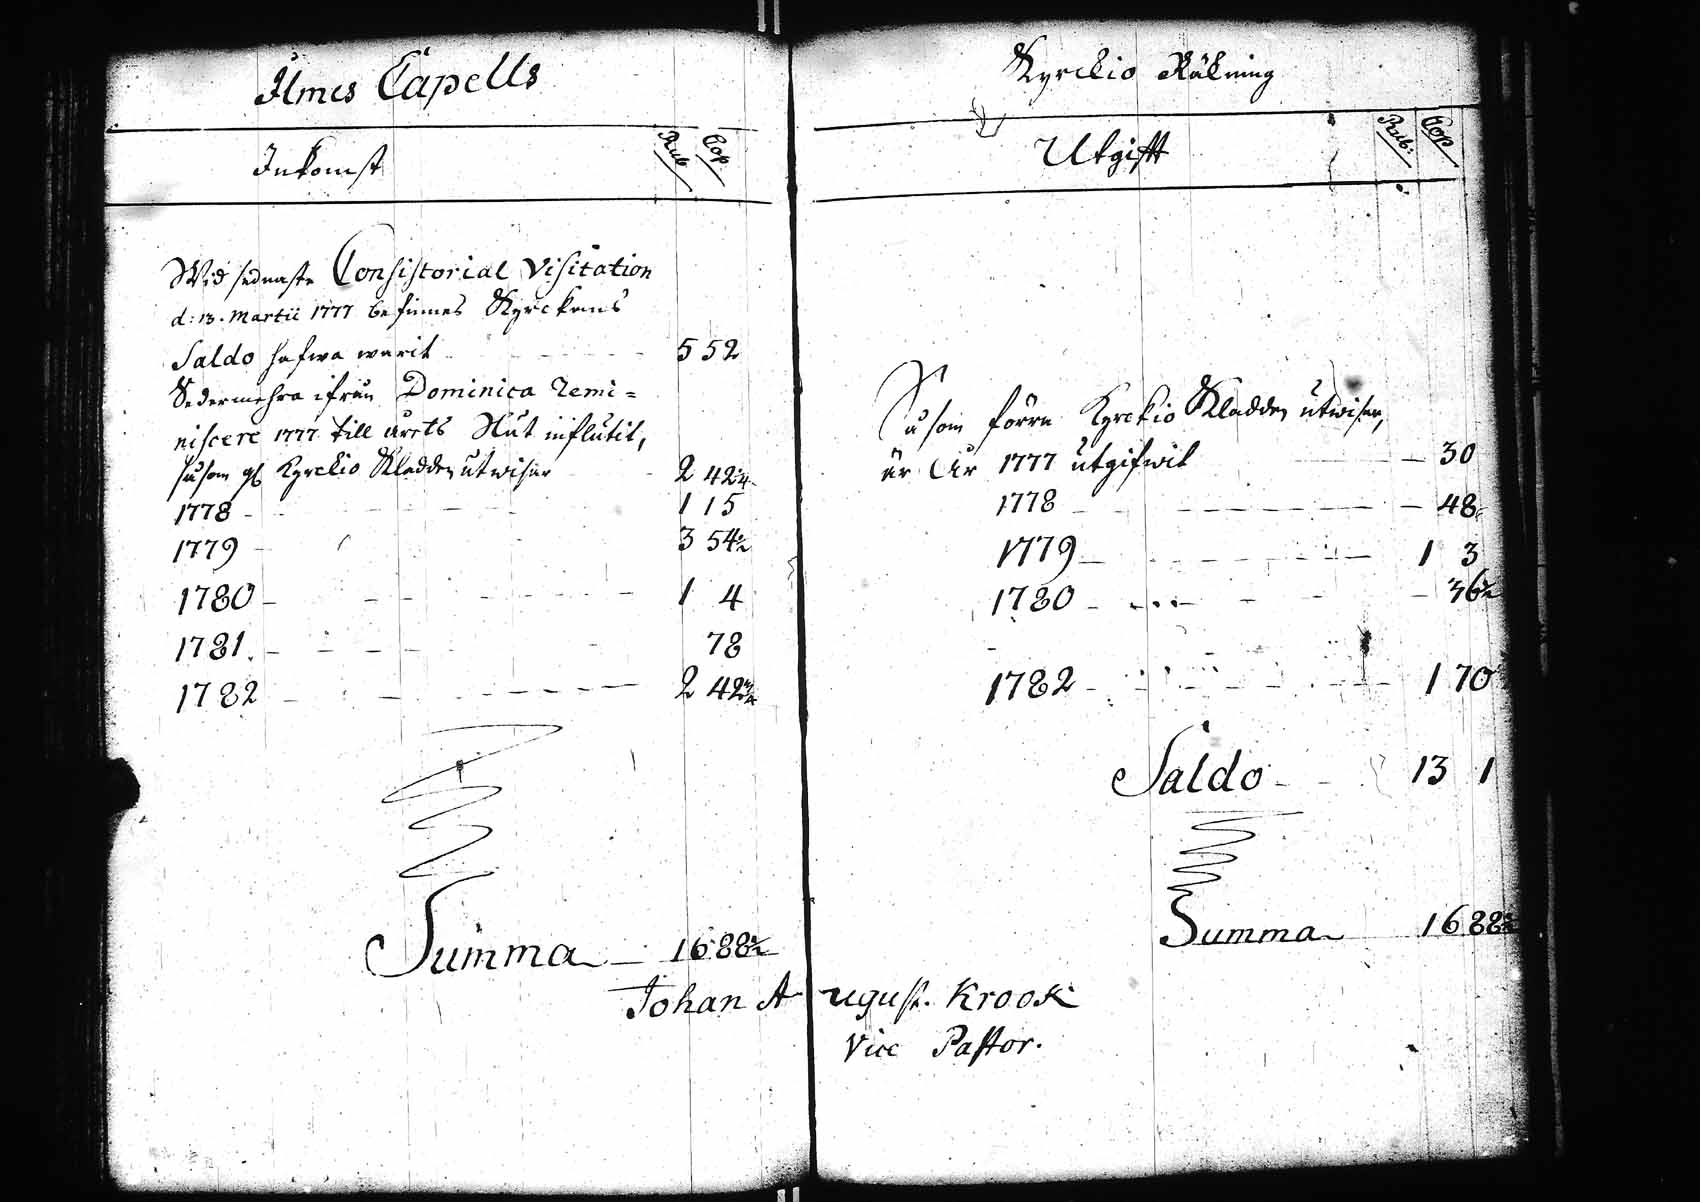 Ilmes Capells
Inkomst Rub Cop
Wid sednaste Consistorial Visitation
d: 13. Martii 1777 befinnes Kyrckans
Saldo hafwa warit 5 52
Sedermehra ifrån Dominica Remi=
niscere 1777 till årets Slut influtit,
såsom Kyrckio Kladden utwisar 2 42 1/4
1778 1 15
1779 3 54 1/2
1780 1 4
1781 78
1782 2 42 3/4
Summa 16 88 1/2
Kyrckio Räkning
Utgifft Rub: Cop
Såsom förra Kyrckio Kladden utwisar,
är År 1777 utgifwit 30
1778 48
1779 1 3
1780 36 1/2
1782 1 70
Saldo 13 1
Summa 16 88 1/2
Johan August. Krook
Vice Pastor.